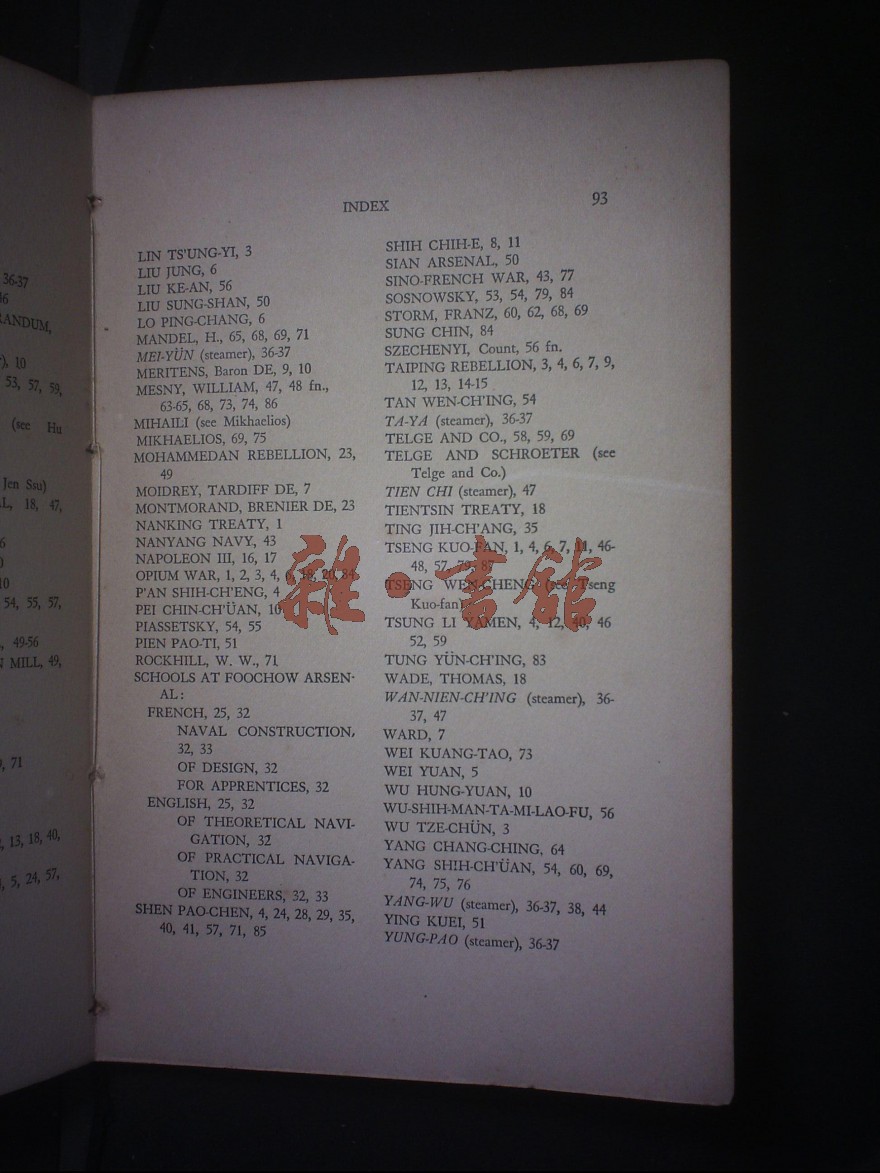 36-37
RANDUM,
), 10
53, 57, 59,
(see Hu
Jen Ssu)
L, 18, 47,
10
54, 55, 57,
, 49-56
N MILL, 49,
, 71
, 13, 18, 40,
, 5, 24, 57,
INDEX 93
LIN TS'UNG-YI, 3
LIU JUNG, 6
LIU KE-AN, 56
LIU SUNG-SHAN, 50
LO PING-CHANG, 6
MANDEL, H., 65, 68, 69, 71
MEI-YÜN (steamer), 36-37
MERITENS, Baron DE, 9, 10
MESNY, WILLIAM, 47, 48 fn.,
63-65, 68, 73, 74, 86
MIHAILI (see Mikhaelios)
MIKHAELIOS, 69, 75
MOHAMMEDAN REBELLION, 23,
49
MOIDREY, TARDIFF DE, 7
MONTMORAND, BRENIER DE, 23
NANKING TREATY, 1
NANYANG NAVY, 43
NAPOLEON III, 16, 17
OPIUM WAR, 1, 2, 3, 4,
P'AN SHIH-CH'ENG, 4
PEI CHIN-CH'ÜAN, 10
PIASSETSKY, 54, 55
PIEN PAO-TI, 51
ROCKHILL, W. W., 71
SCHOOLS AT FOOCHOW ARSEN-
AL:
FRENCH, 25, 32
NAVAL CONSTRUCTION,
32, 33
OF DESIGN, 32
FOR APPRENTICES, 32
ENGLISH, 25, 32
OF THEORETICAL NAVI-
GATION, 32
OF PRACTICAL NAVIGA-
TION, 32
OF ENGINEERS, 32, 33
SHEN PAO-CHEN, 4, 24, 28, 29, 35,
40, 41, 57, 71, 85
SHIH CHIH-E, 8, 11
SIAN ARSENAL, 50
SINO-FRENCH WAR, 43, 77
SOSNOWSKY, 53, 54, 79, 84
STORM, FRANZ, 60, 62, 68, 69
SUNG CHIN, 84
SZECHENYI, Count, 56 fn.
TAIPING REBELLION, 3, 4, 6, 7, 9,
12, 13, 14-15
TAN WEN-CH'ING, 54
TA-YA (steamer), 36-37
TELGE AND CO., 58, 59, 69
TELGE AND SCHROETER (see
Telge and Co.)
TIEN CHI (steamer), 47
TIENTSIN TREATY, 18
TING JIH-CH'ANG, 35
TSENG KUO-FAN, 1, 4, 6, 7, 11, 46-
48, 57, 79, 87
TSENG WEN-CHENG (see Tseng
Kuo-fan)
TSUNG LI YAMEN, 4, 12, 40, 46
52, 59
TUNG YÜN-CH'ING, 83
WADE, THOMAS, 18
WAN-NIEN-CH'ING (steamer), 36-
37, 47
WARD, 7
WEI KUANG-TAO, 73
WEI YUAN, 5
WU HUNG-YUAN, 10
WU-SHIH-MAN-TA-MI-LAO-FU, 56
WU TZE-CHÜN, 3
YANG CHANG-CHING, 64
YANG SHIH-CH'ÜAN, 54, 60, 69,
74, 75, 76
YANG-WU (steamer), 36-37, 38, 44
YING KUEI, 51
YUNG-PAO (steamer), 36-37
雜·書館